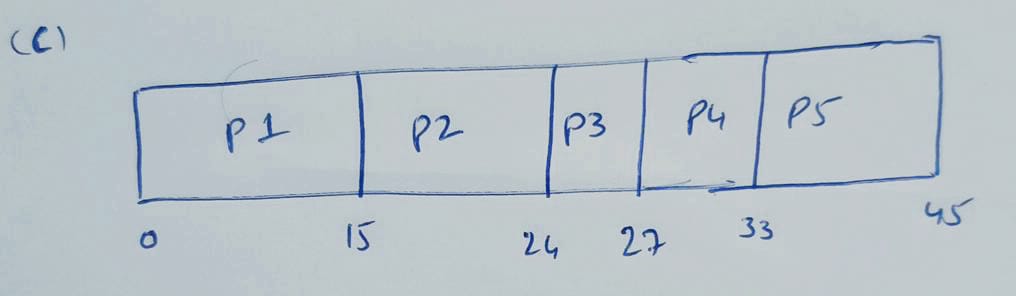 (C)
P1 P2 P3 P4 P5
0 15 24 27 33 45